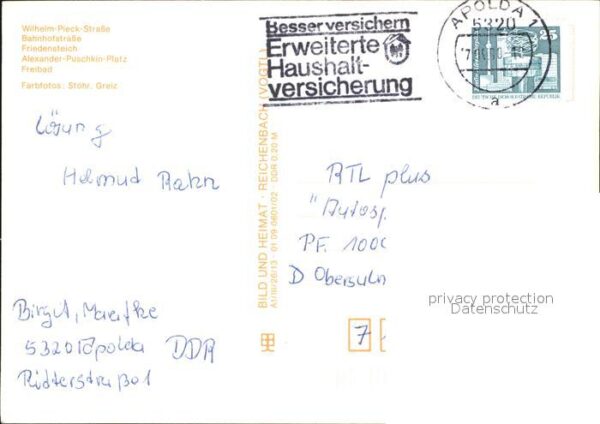 Wilhelm-Pieck-Straße
Bahnhofstraße
Friedensteich
Alexander-Puschkin-Platz
Freibad
Farbfotos: Stöhr, Greiz
Besser versichern
Erweiterte
Haushalt-
versicherung
APOLDA 1
5320
a
25
DEUTSCHE DEMOKRATISCHE REPUBLIK
BILD UND HEIMAT · REICHENBACH (VOGTL)
A1/III/26/13 · 01 09 0601/02 · DDR 0,20 M
Lösung
Helmud Rahn
RTL plus
"Autosp
PF. 1000
D Obersulm
7
Birgit,
5320 Apolda DDR
Ritterstraße 1
privacy protection
Datenschutz